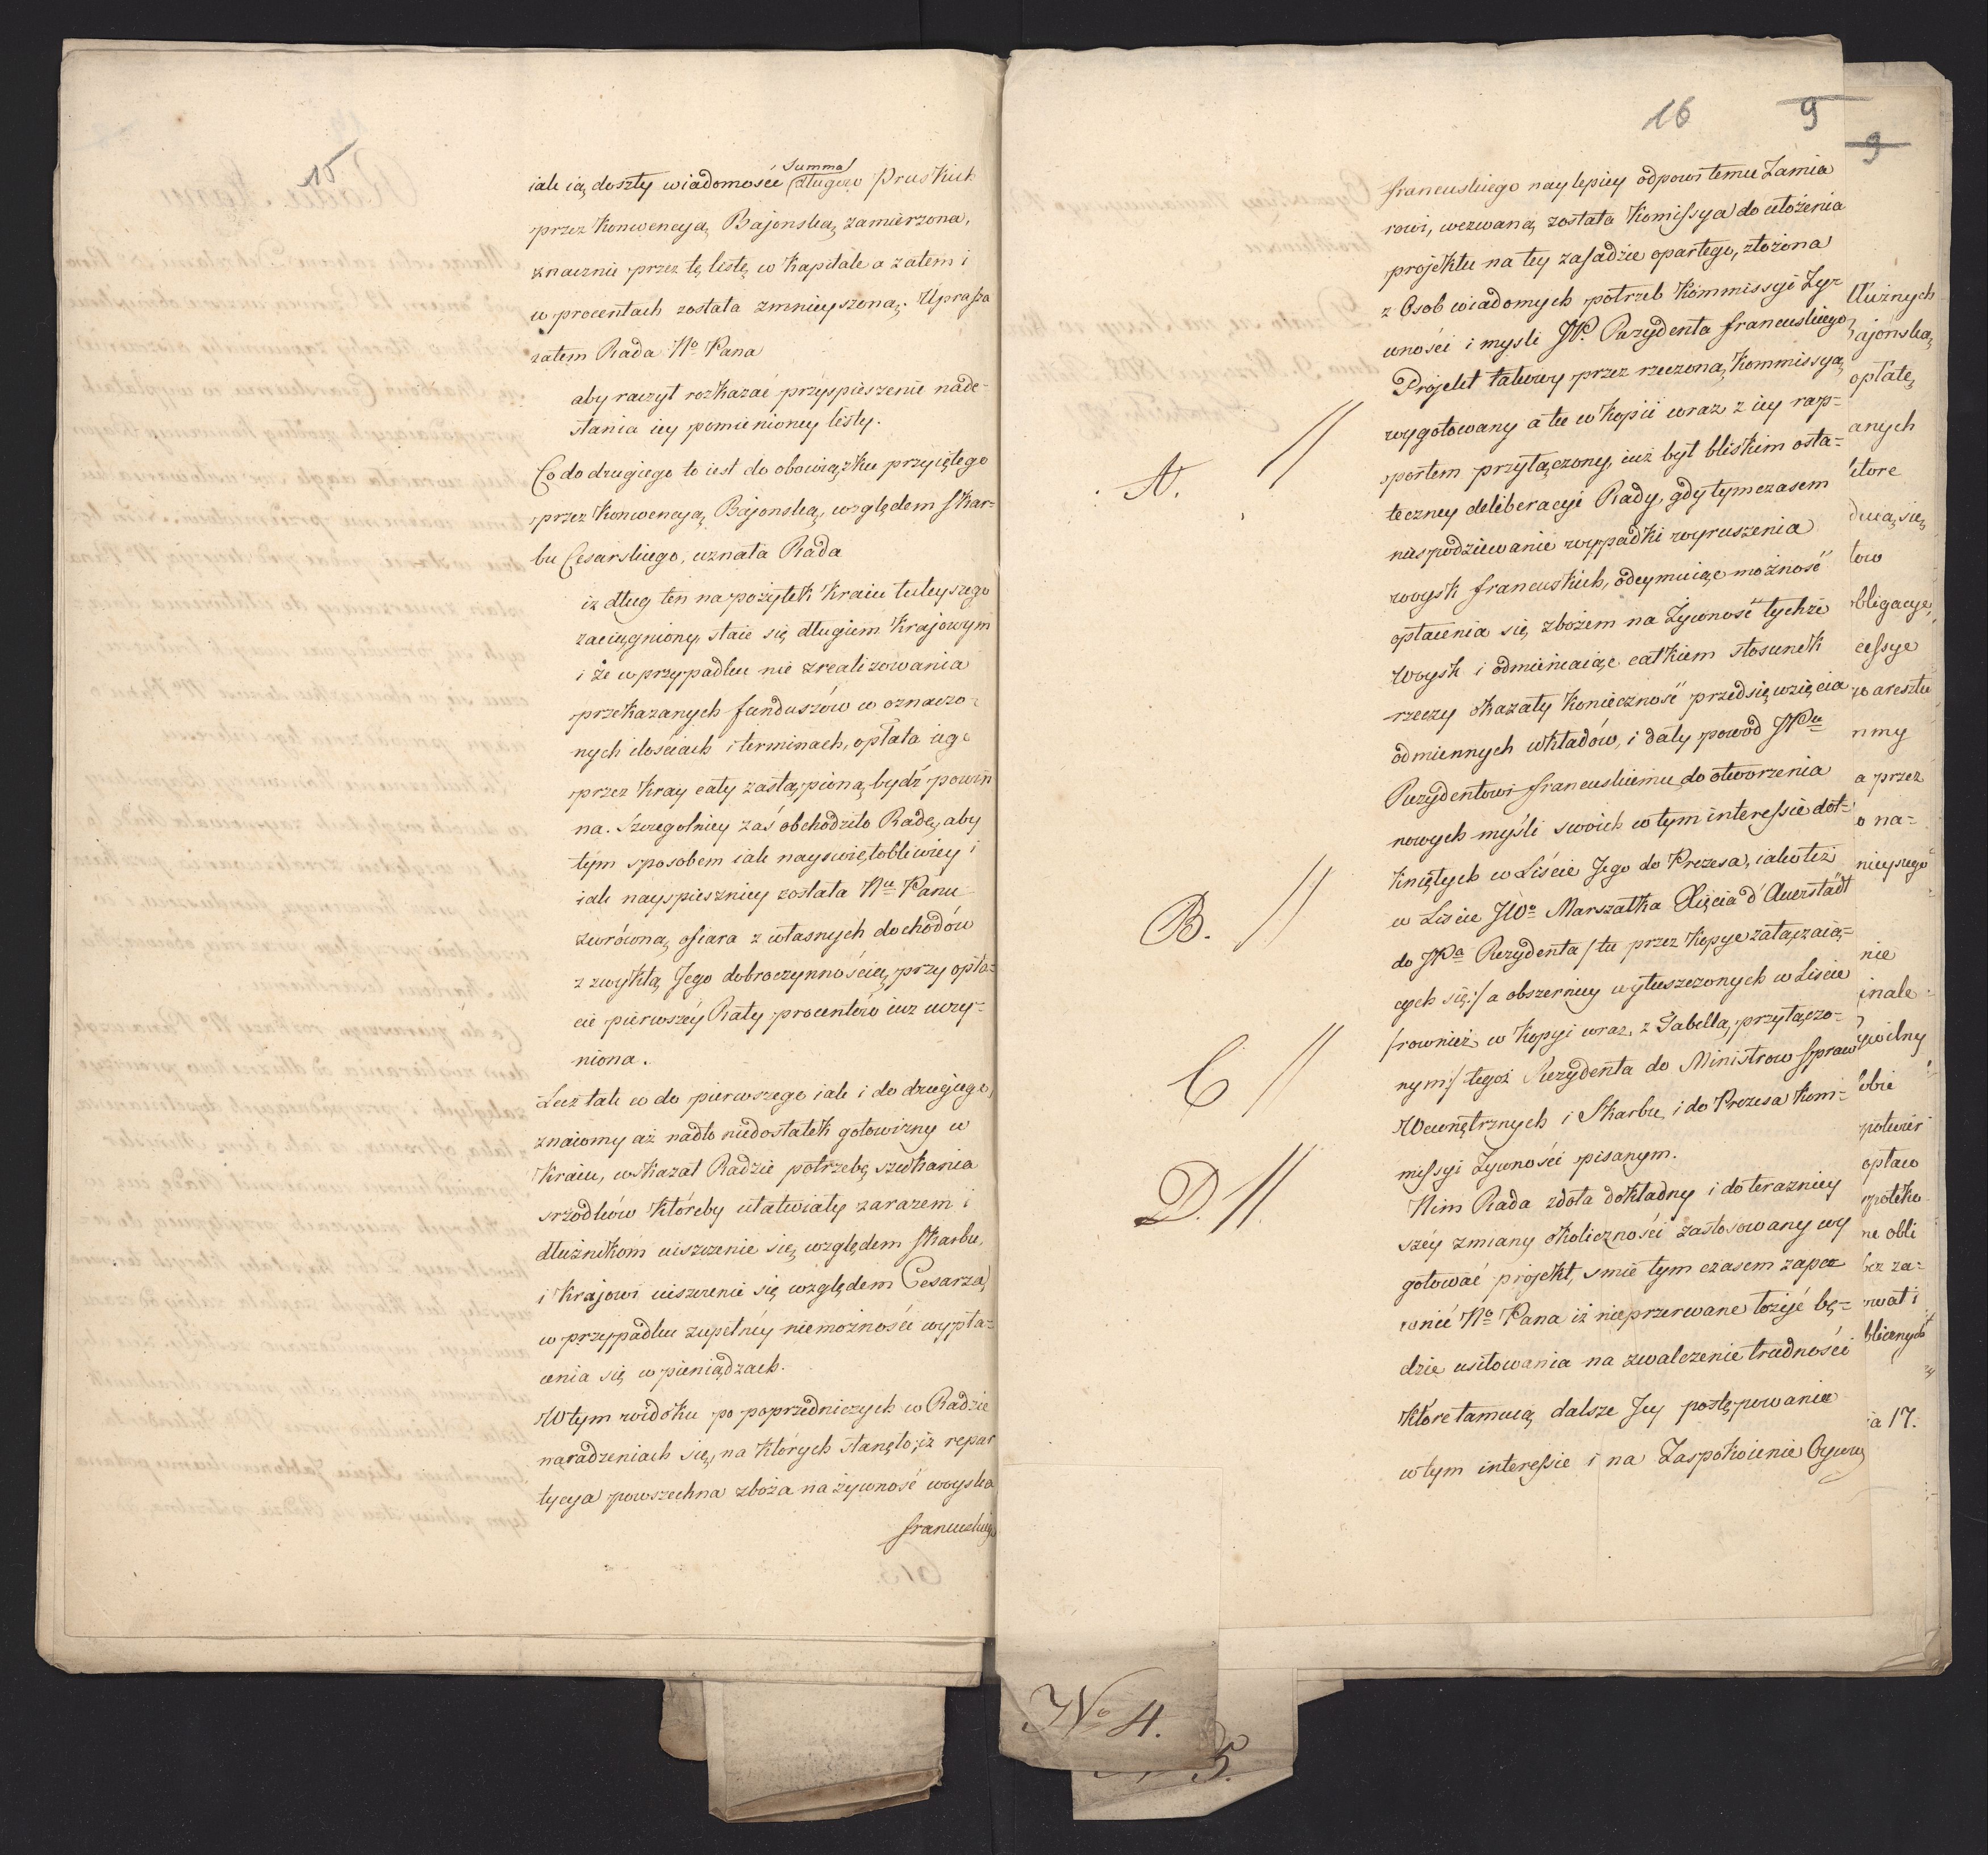 15
Summa
iak ią doszły wiadomości długów Pruskich
przez Konwencyą Bajonską zamierzona,
znacznie przez tę listę w Kapitale a zatem i
w procentach została zmnieyszoną. Uprasza
zatem Rada Nº Pana
aby raczył rozkazać przyspieszenie nade-
słania iey pomienioney listy.
Co do drugiego to iest do obowiązku przyiętego
przez Konwencyą Bajonską, względem Skar-
bu Cesarskiego, uznała Rada
iż dług ten na pożytek Kraiu tuteyszego
zaciągniony, staie się długiem Krajowym
i że w przypadku nie zrealizowania
przekazanych funduszów w oznaczo-
nych ilościach i terminach, opłata iego
przez Kray cały zastąpioną bydź powin
na. Szczegolniey zaś obchodziło Radę, aby
tym sposobem iak nayświętobliwiey i
iak nayspieszniey została Nu Panu
zwróconą ofiara z własnych dochodów
z zwykłą Jego dobroczynnością przy opła-
cie pierwszéy Raty procentów iuż uczy-
niona.
Lecz tak co do pierwszego iak i do drugiego,
znaiomy aż nadto niedostatek gotowizny w
Kraiu, wskazał Radzie potrzebę szukania
srzodków któreby ułatwiały zarazem i
dłużnikom uiszczenie się względem Skarbu,
i Krajowi uiszczenie się względem Cesarza,
w przypadku zupełnéy niemożności wypła-
cenia się w pieniądzach.
W tym widoku po poprzedniczych w Radzie
naradzeniach się, na których stanęło, iż repar
tycya powszechna zboża na żywność woyska
francuskiego
16 9
9
francuskiego naylepiey odpowi temu Zamia
rowi, wezwaną została Komissya do ułożenia
projektu na tey zasadzie opartego, złożona
z Osob wiadomych potrzeb Kommissyi Żyw
wności i mysli JP. Rezydenta francuskiego,
Projekt takowy przez rzeczoną Kommissyą
wygotowany a tu w Kopii wraz z iey rap-
portem przyłączony, iuż był bliskim osta-
teczney deliberacyi Rady, gdy tymczasem
niespodziewanie wypadki wyruszenia
woysk francuskich, odeymuiąc możność
opłacenia się zbożem na Żywność tychże
Woysk i odmieniaiąc całkiem stosunek
rzeczy okazały Konieczność przedsięwzięcia
odmiennych układów, i dały powod JPu
Rezydentowi francuskiemu do otworzenia
nowych myśli swoich w tym interessie dot-
kniętych w Liście Jego do Prezesa, iako też
w Liście JWº Marszałka Xięcia d'Auerstädt
do JPa Rezydenta /: tu przez Kopye załączaią-
cych się :/ a obszerniey wyłuszczonych w Liscie
/: rownież w Kopyi wraz z Tabellą przyłączo-
nym :/ tegoż Rezydenta do Ministrow Spraw
Wewnętrznych i Skarbu, i do Prezesa Kom-
missyi Żywności pisanym.
Nim Rada zdoła dokładny i do terazniey
széy zmiany okoliczności zastosowany wy
gotować projekt, smie tym czasem zape
wnić Nº Pana iż nieprzerwane łożyć bę-
dzie usiłowania na zwalczenie trudności
które tamuią dalsze Jey postępowanie
w tym interessie i na Zaspokoienie Oycow
A. //
B. //
C //
D. //
łużnych
ajońską,
opłatę,
anych
które
duią się,
tow
bligacye,
cessye
w aresztu
nmy
a przez
o na-
nieyszego
nie
inale
ywilny
obie
potwier
opłaco
ypoteko
ne obli
bez za-
wat i
blicznych
ia 17.
Nº 4.
5.